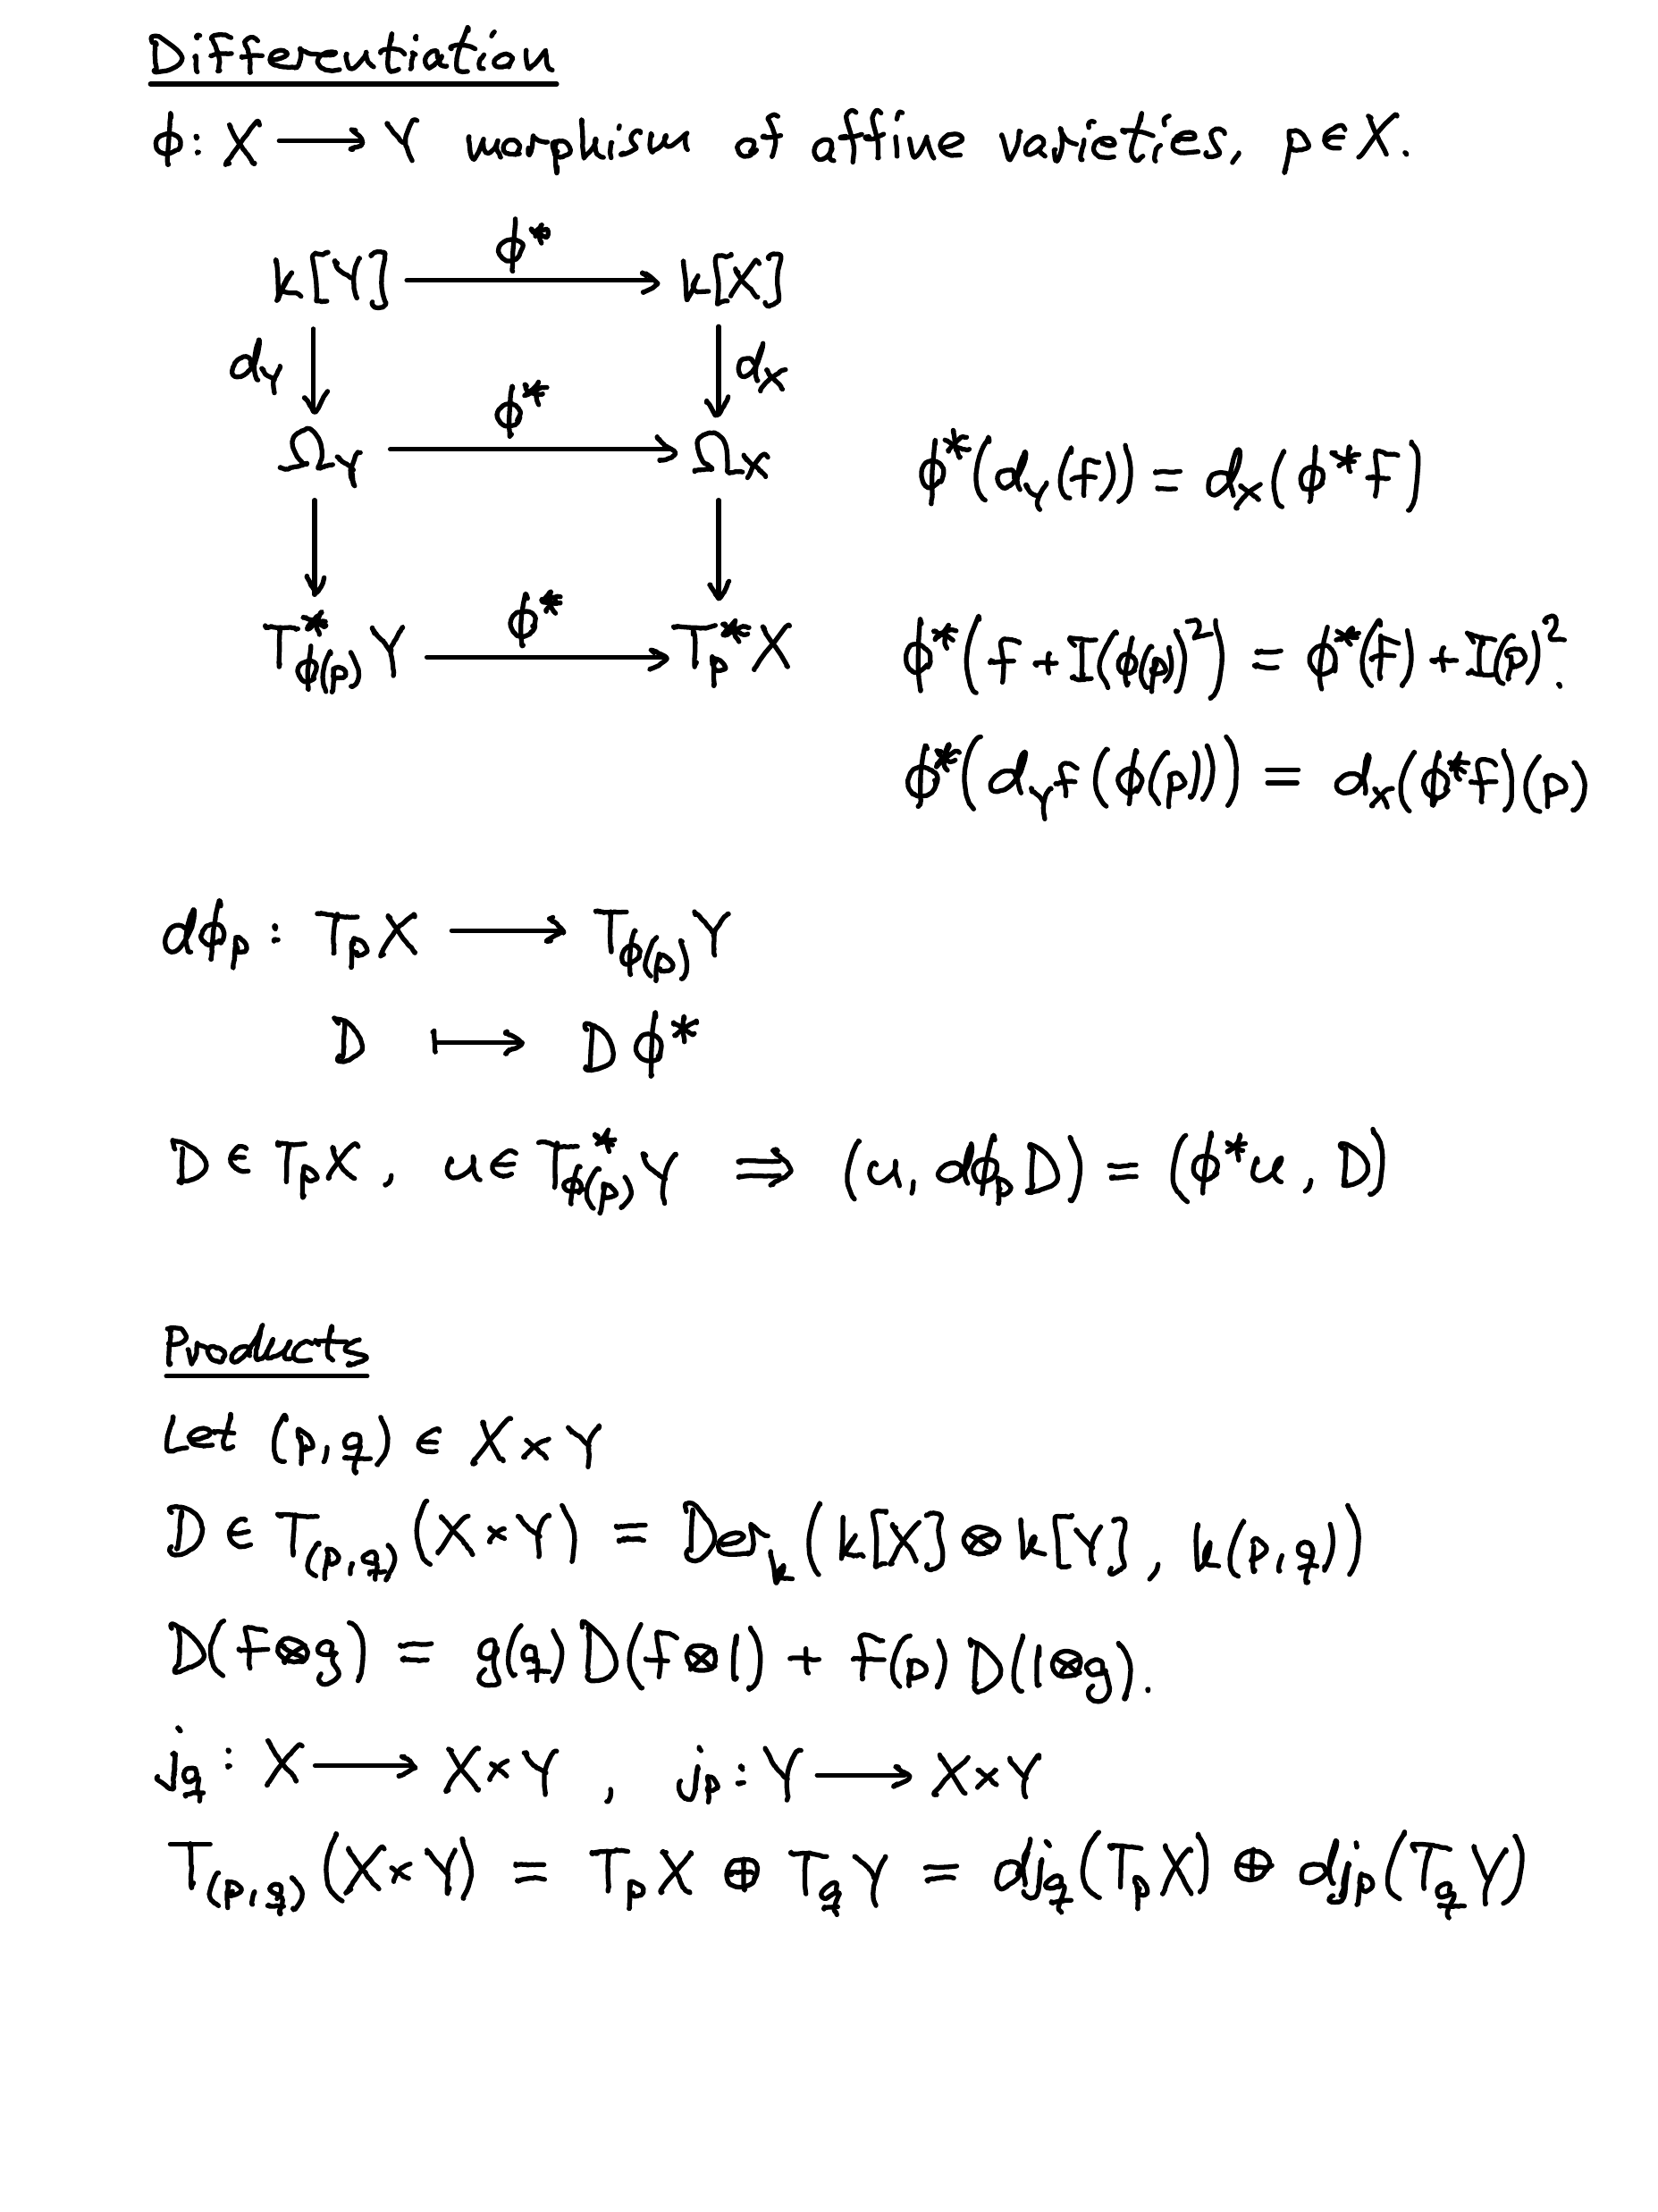 Differentiation
ϕ: X ⟶ Y morphism of affine varieties, p ∈ X.
ϕ*
k[Y] ⟶ k[X]
d_Y ↓ ↓ d_X
ϕ*
Ω_Y ⟶ Ω_X ϕ*(d_Y(f)) = d_X(ϕ*f)
↓ ↓
ϕ*
T*_{ϕ(p)}Y ⟶ T*_pX ϕ*(f + I(ϕ(p))²) = ϕ*(f) + I(p)².
ϕ*(d_Yf(ϕ(p))) = d_X(ϕ*f)(p)
dϕ_p : T_pX ⟶ T_{ϕ(p)}Y
D ⟼ Dϕ*
D ∈ T_pX, u ∈ T*_{ϕ(p)}Y ⟹ (u, dϕ_pD) = (ϕ*u, D)
Products
Let (p,q) ∈ X × Y
D ∈ T_{(p,q)}(X×Y) = Der_k(k[X]⊗k[Y], k(p,q))
D(f⊗g) = g(q)D(f⊗1) + f(p)D(1⊗g).
j_q : X ⟶ X×Y, j_p : Y ⟶ X×Y
T_{(p,q)}(X×Y) = T_pX ⊕ T_qY = dj_q(T_pX) ⊕ dj_p(T_qY)